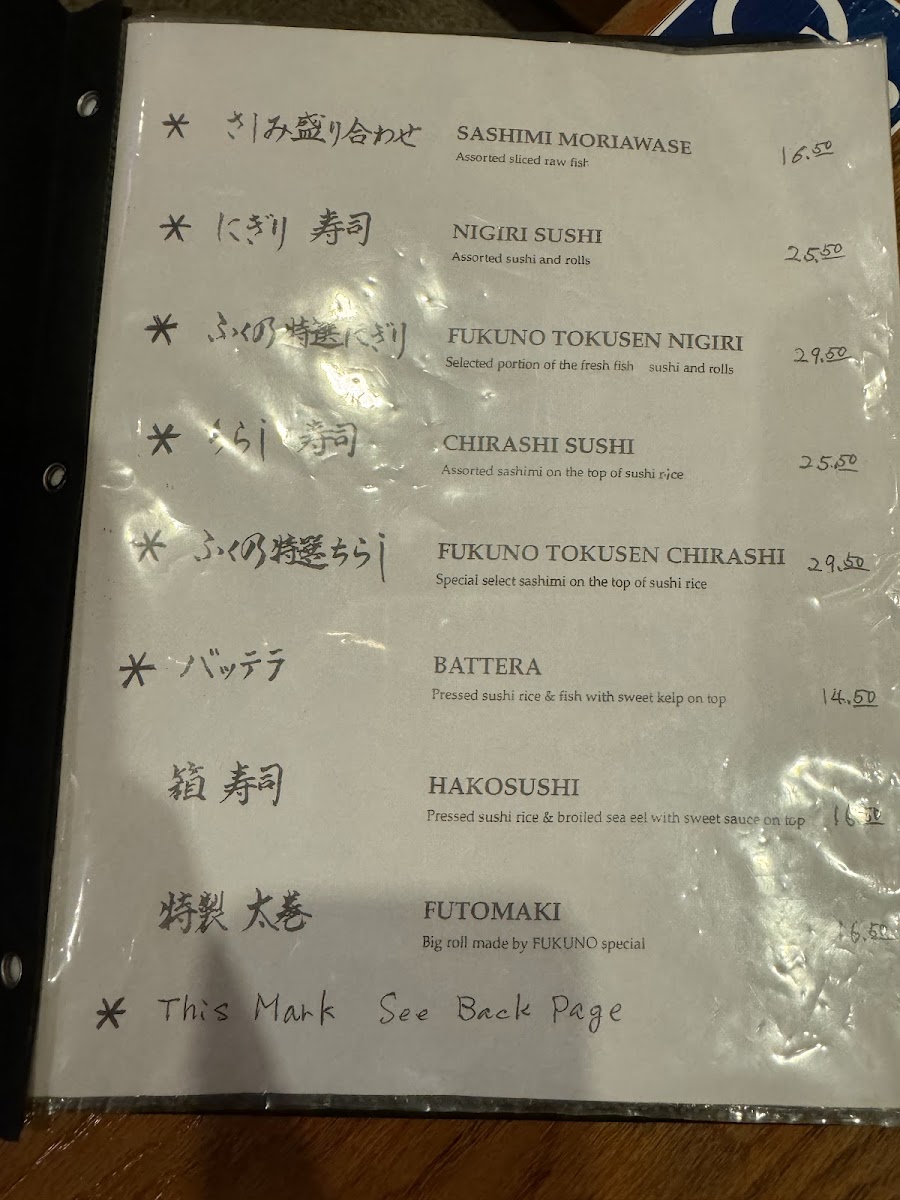 * さしみ盛り合わせ SASHIMI MORIAWASE 16.50
Assorted sliced raw fish
* にぎり 寿司 NIGIRI SUSHI 25.50
Assorted sushi and rolls
* ふくの特選にぎり FUKUNO TOKUSEN NIGIRI 29.50
Selected portion of the fresh fish sushi and rolls
* ちらし 寿司 CHIRASHI SUSHI 25.50
Assorted sashimi on the top of sushi rice
* ふくの特選ちらし FUKUNO TOKUSEN CHIRASHI 29.50
Special select sashimi on the top of sushi rice
* バッテラ BATTERA
Pressed sushi rice & fish with sweet kelp on top 14.50
箱 寿司 HAKOSUSHI
Pressed sushi rice & broiled sea eel with sweet sauce on top 16.50
特製 太巻 FUTOMAKI
Big roll made by FUKUNO special 16.50
* This Mark See Back Page